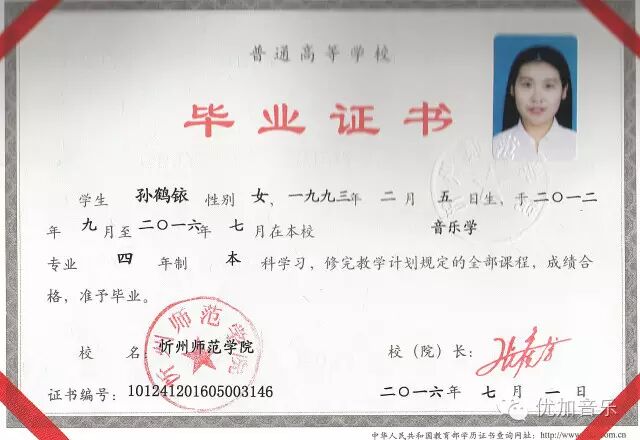 普通高等学校
毕业证书
学生 孙鹤铱 性别 女,一九九三年 二 月 五 日生,于二〇一二
年 九 月至二〇一六年 七 月在本校 音乐学
专业 四 年制 本 科学习,修完教学计划规定的全部课程,成绩合
格,准予毕业。
校 名:忻州师范学院 校(院)长:
忻州师范学院
证书编号:101241201605003146 二〇一六年 七 月 一 日
优加音乐
中华人民共和国教育部学历证书查询网址: